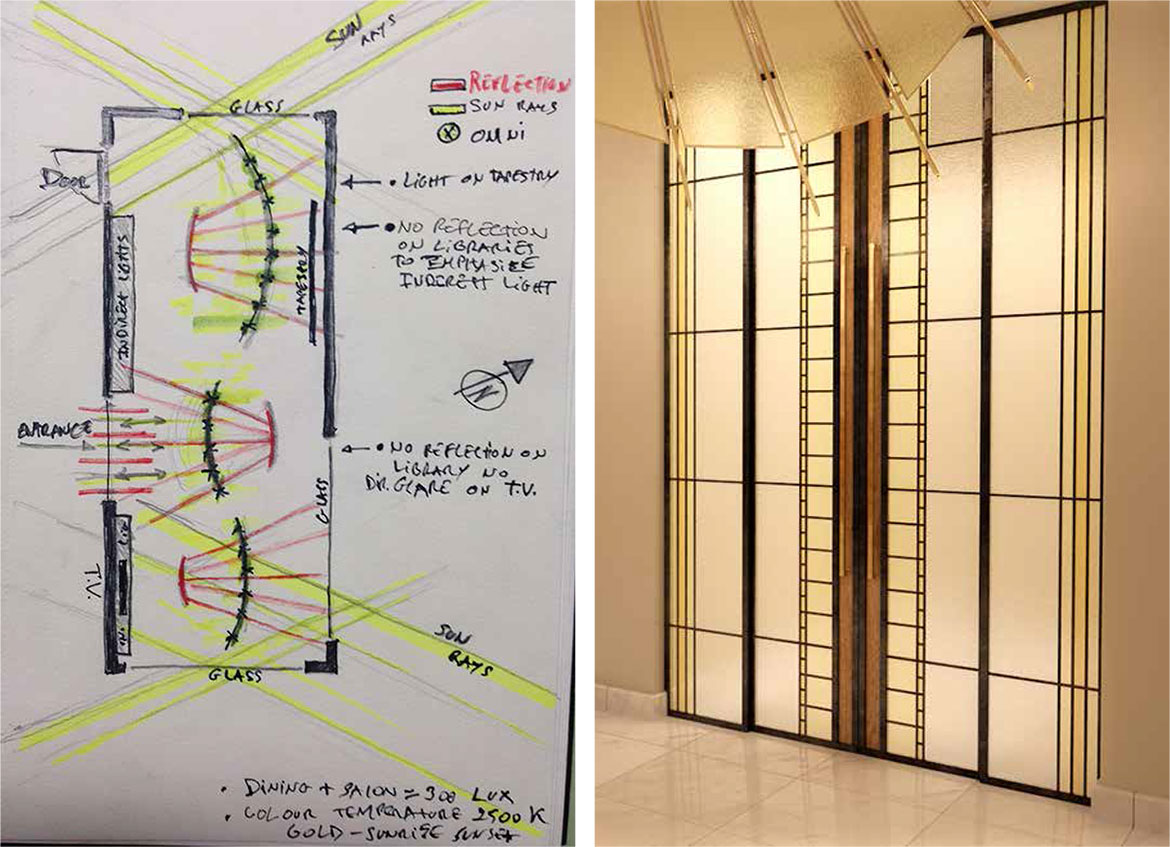 SUN RAYS
REFLECTION
GLASS
SUN RAYS
OMNI
DOOR
• LIGHT ON TAPESTRY
• NO REFLECTION
ON LIBRARIES
TO EMPHASISE
INDERECT LIGHT
INDIRECT LIGHTS
TAPESTRY
N
ENTRANCE
• NO REFLECTION ON
LIBRARY NO
DIR. GLARE ON T.V.
GLASS
T.V.
SUN
RAYS
GLASS
• DINING + SALON = 300 LUX
• COLOUR TEMPERATURE 2500 K
GOLD - SUNRISE SUNSET